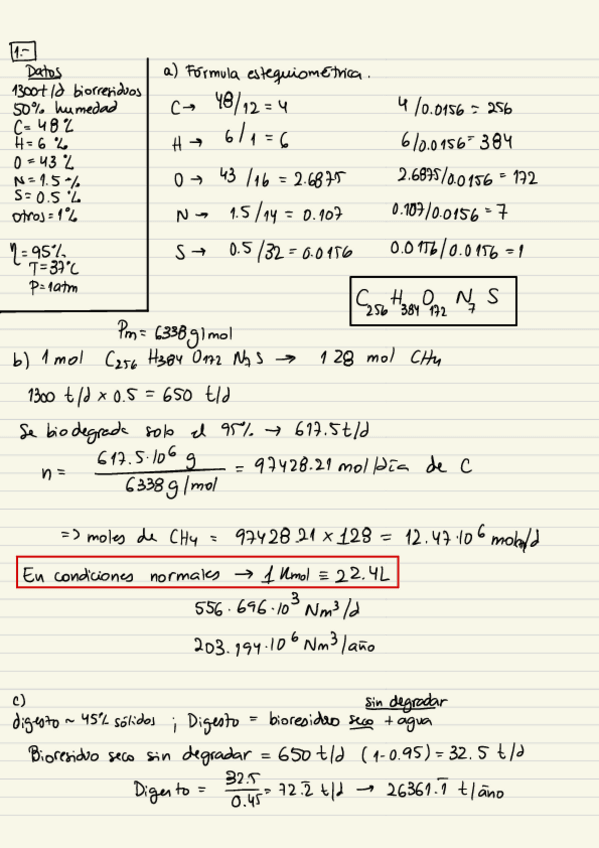 1.-
Datos
1300t/d biorresiduos
50% humedad
C= 48%
H= 6 %
O = 43 %
N = 1.5 %
S = 0.5 %
otros = 1%
η = 95%
T = 37°C
P = 1atm
a) Fórmula estequiométrica.
C → 48/12 = 4 4/0.0156 = 256
H → 6/1 = 6 6/0.0156 = 384
O → 43/16 = 2.6875 2.6875/0.0156 = 172
N → 1.5/14 = 0.107 0.107/0.0156 = 7
S → 0.5/32 = 0.0156 0.0156/0.0156 = 1
C256 H384 O172 N7 S
Pm = 6338 g/mol
b) 1 mol C256 H384 O172 N7 S → 128 mol CH4
1300 t/d × 0.5 = 650 t/d
Se biodegrada solo el 95% → 617.5 t/d
n = 617.5·10⁶ g / 6338 g/mol = 97428.21 mol/día de C
=> moles de CH4 = 97428.21 × 128 = 12.47·10⁶ moles/d
En condiciones normales → 1 Kmol ≡ 22.4L
556.696·10³ Nm³/d
203.194·10⁶ Nm³/año
c)
sin degradar
digesto ~ 45% sólidos ; Digesto = bioresiduo seco + agua
Bioresiduo seco sin degradar = 650 t/d (1-0.95) = 32.5 t/d
Digesto = 32.5/0.45 = 72.2̄ t/d → 26361.1̄ t/año